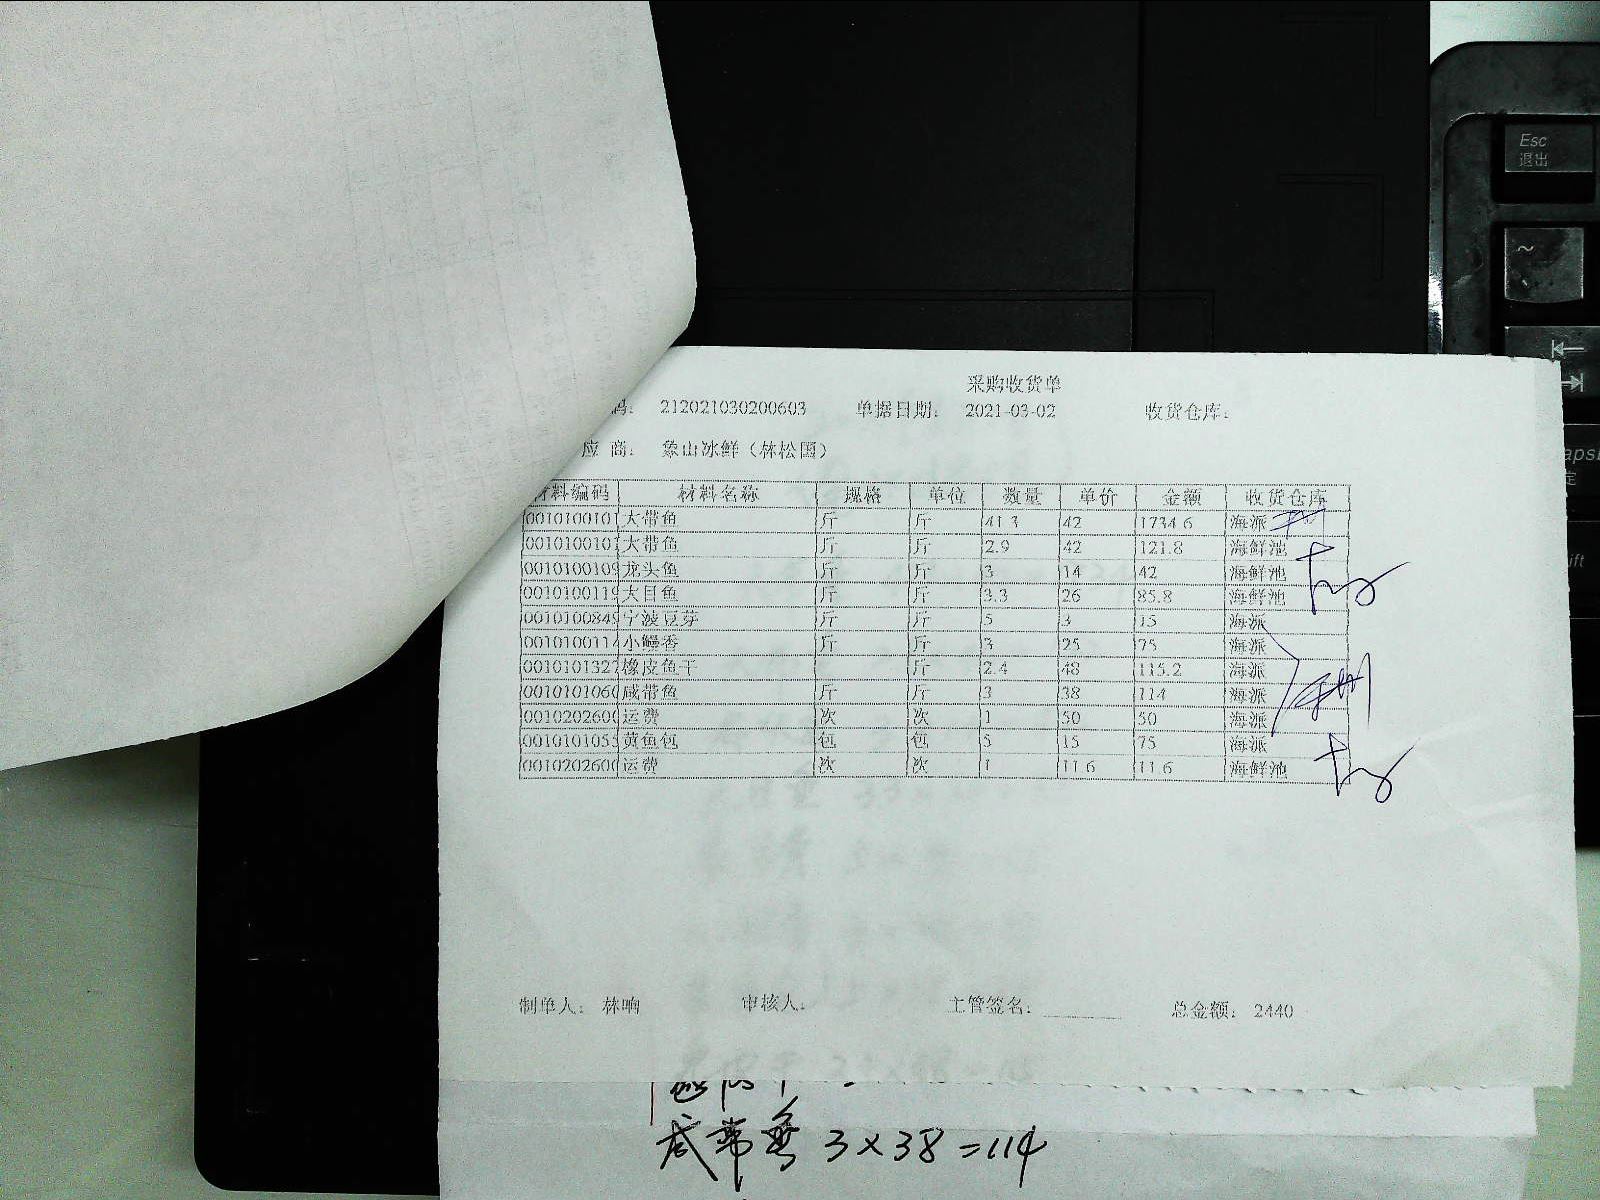 采购收货单
码： 212021030200603 单据日期： 2021-03-02 收货仓库：
应 商： 象山冰鲜（林松国）
材料编码 材料名称 规格 单位 数量 单价 金额 收货仓库
0010100101 大带鱼 斤 斤 41.3 42 1734.6 海派
0010100101 大带鱼 斤 斤 2.9 42 121.8 海鲜池
0010100109 龙头鱼 斤 斤 3 14 42 海鲜池
0010100119 大目鱼 斤 斤 3.3 26 85.8 海鲜池
0010100849 宁波豆芽 斤 斤 5 3 15 海派
0010100114 小鳗香 斤 斤 3 25 75 海派
0010101327 橡皮鱼干 斤 2.4 48 115.2 海派
0010101060 咸带鱼 斤 斤 3 38 114 海派
0010202600 运费 次 次 1 50 50 海派
0010101055 黄鱼包 包 包 5 15 75 海派
0010202600 运费 次 次 1 11.6 11.6 海鲜池
制单人： 林响 审核人： 主管签名： 总金额： 2440
咸带鱼 3×38=114
Esc
退出
~